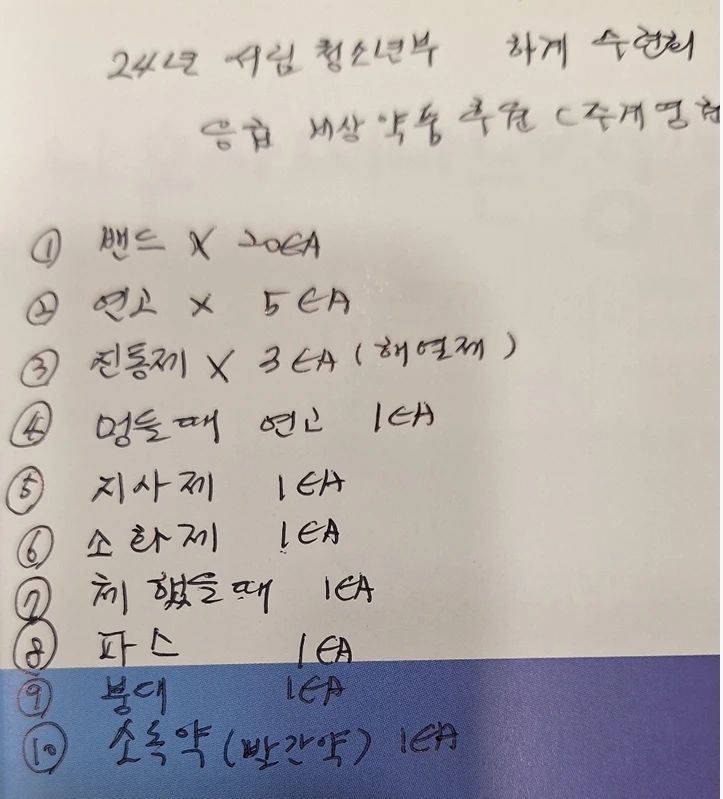 24년 서림 청소년부 하계 수련회
응급 비상약통 후원 (주계명
① 밴드 X 20EA
② 연고 X 5EA
③ 진통제 X 3EA (해열제)
④ 멍들때 연고 1EA
⑤ 지사제 1EA
⑥ 소화제 1EA
⑦ 체했을때 1EA
⑧ 파스 1EA
⑨ 붕대 1EA
⑩ 소독약 (빨간약) 1EA